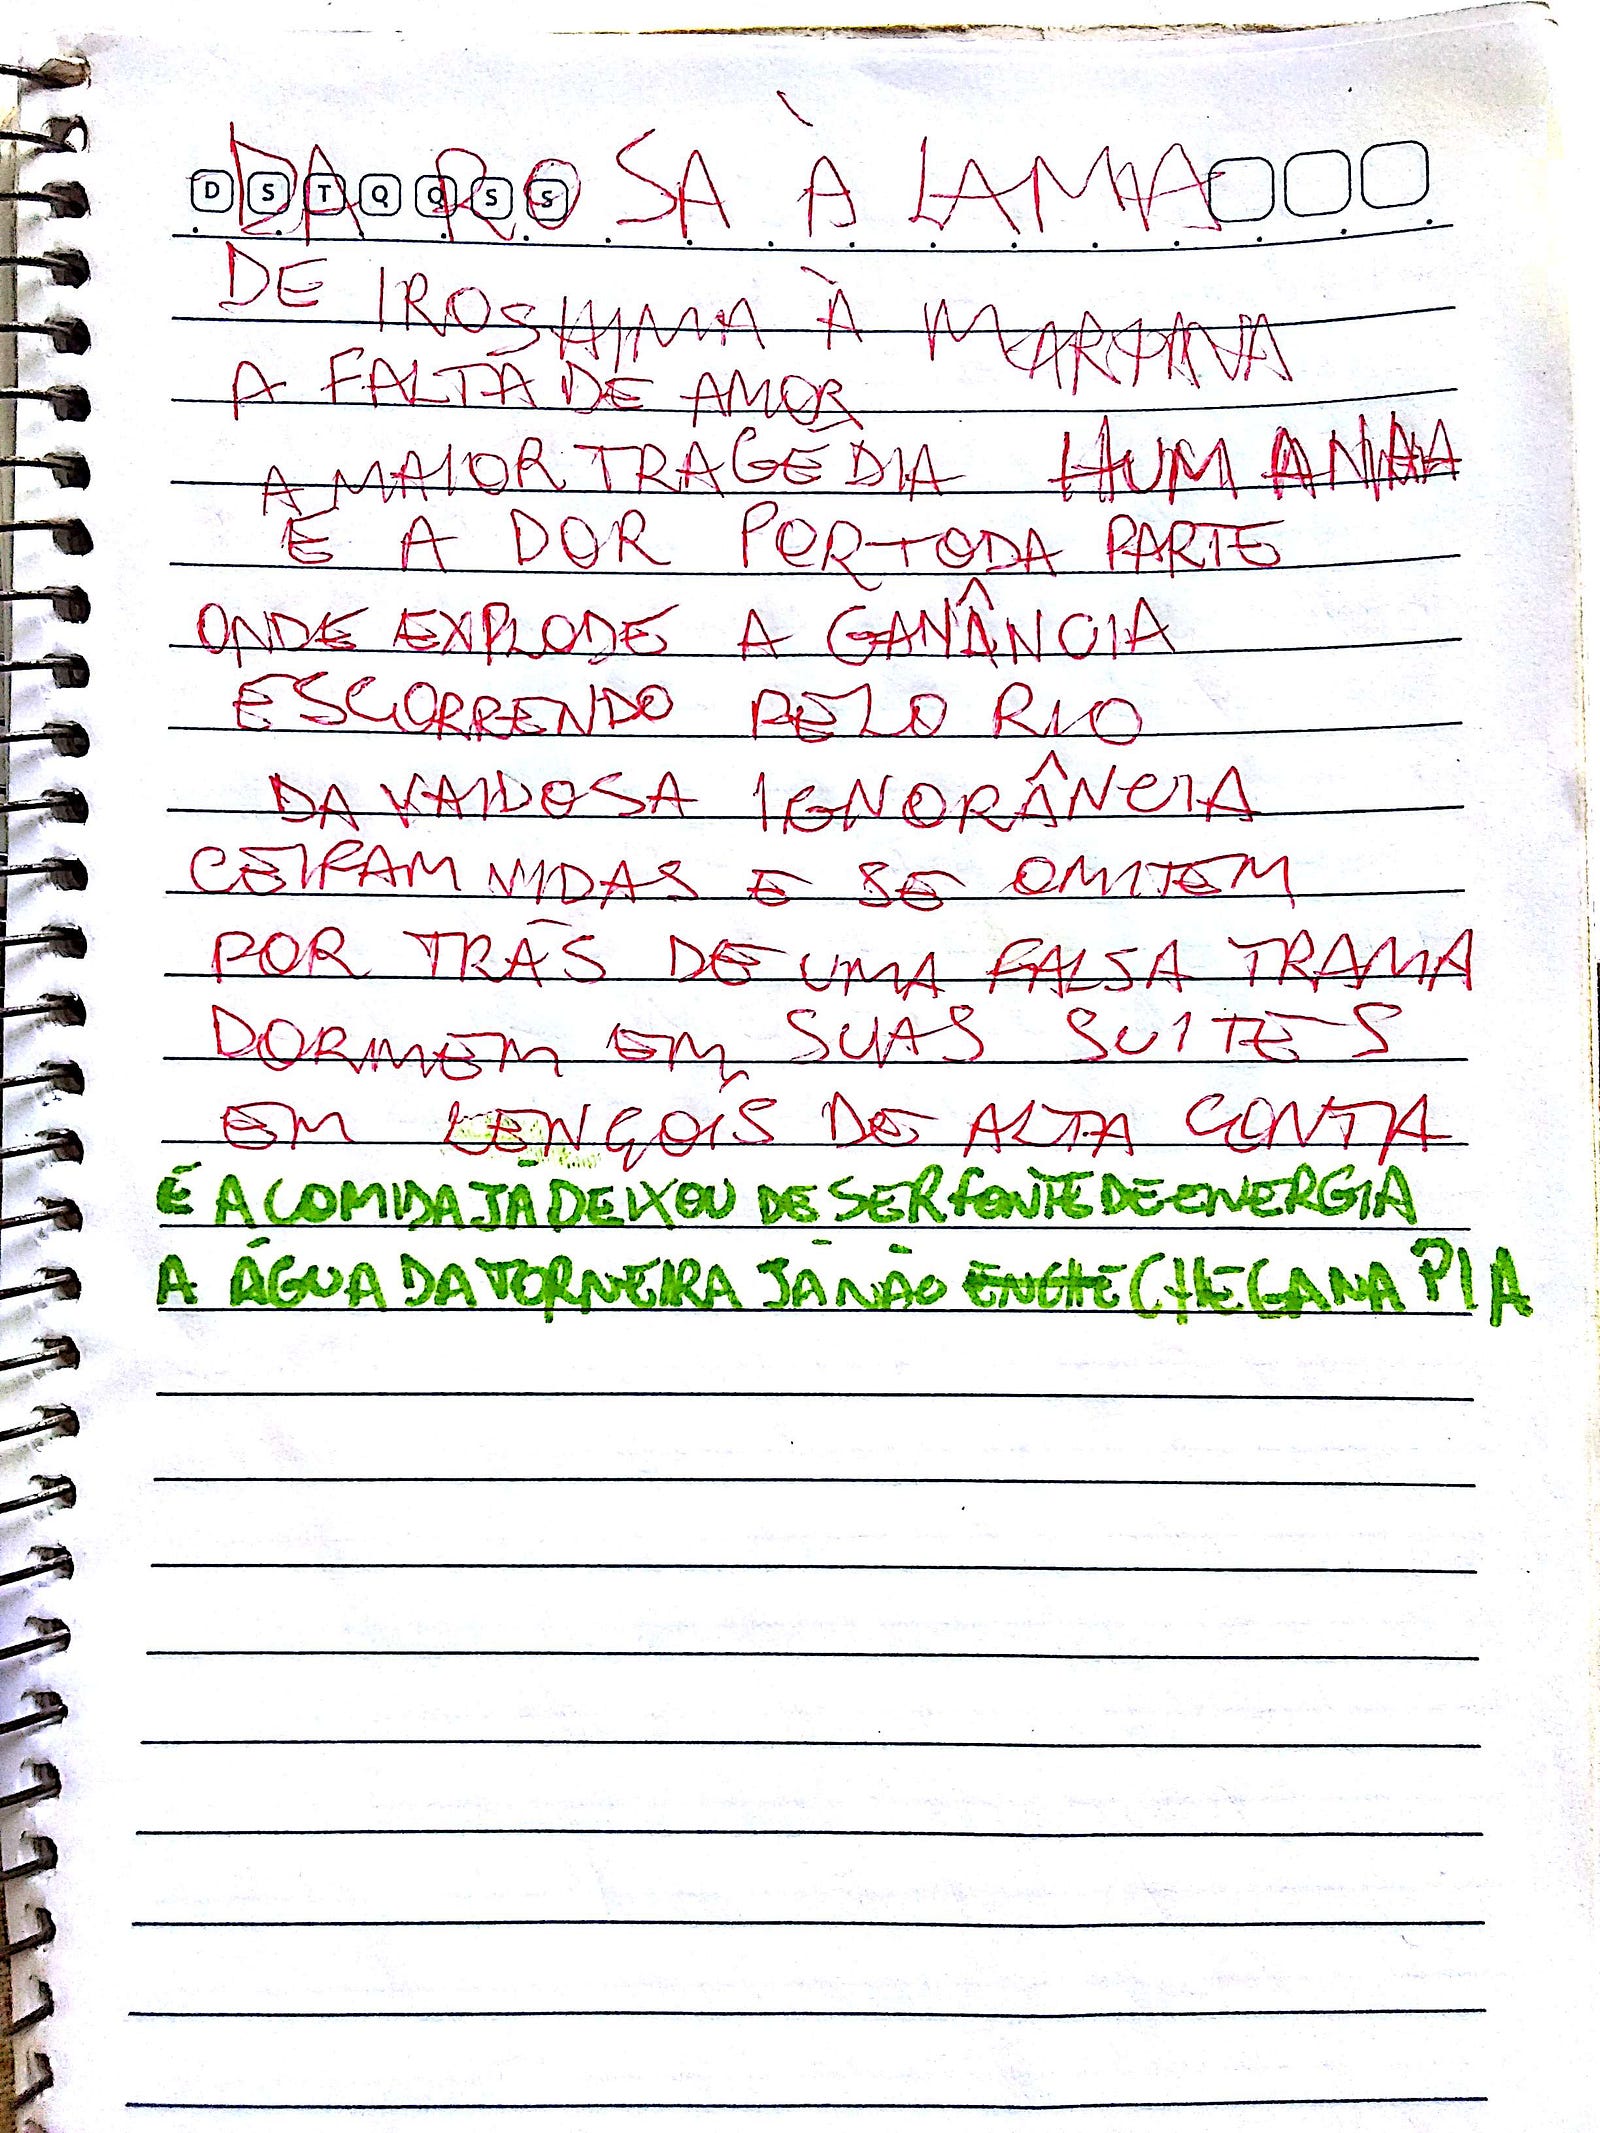 D S T Q Q S S
DA ROSA À LAMA
DE IROSHIMA À MARIANA
A FALTA DE AMOR
A MAIOR TRAGÉDIA HUMANA
E A DOR POR TODA PARTE
ONDE EXPLODE A GANÂNCIA
ESCORRENDO PELO RIO
DA VAIDOSA IGNORÂNCIA
CEIFAM VIDAS E SE OMITEM
POR TRÁS DE UMA FALSA TRAMA
DORMEM EM SUAS SUITES
EM LENÇÓIS DE ALTA CONTA
E A COMIDA JÁ DEIXOU DE SER FONTE DE ENERGIA
A ÁGUA DA TORNEIRA JÁ NÃO ENCHE CHEGA NA PIA